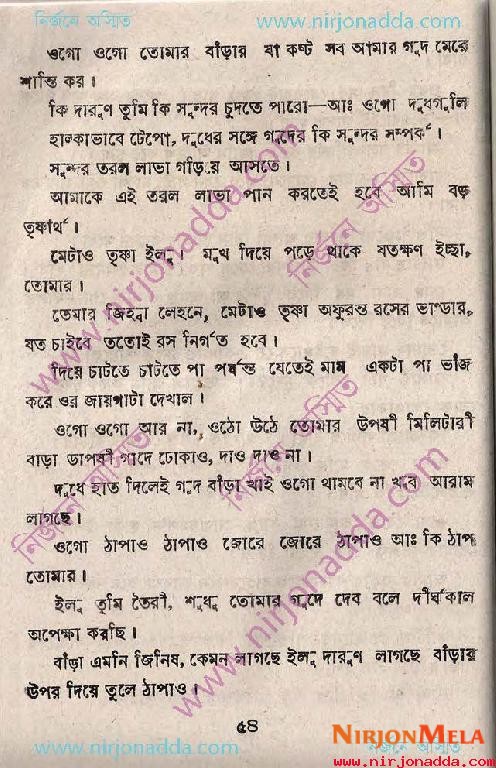 নির্জনে অস্মিত www.nirjonadda.com
ওগো ওগো তোমার বাঁড়ার যা কষ্ট সব আমার গুদ মেরে
শান্তি কর।
কি দারুণ তুমি কি সুন্দর চুদতে পারো—আঃ ওগো দুধগুলি
হাল্কাভাবে টেপো, দুধের সঙ্গে গুদের কি সুন্দর সম্পর্ক।
সুন্দর তরল লাভা গড়িয়ে আসতে।
আমাকে এই তরল লাভা পান করতেই হবে আমি বড়
তৃষ্ণার্থ।
মেটাও তৃষ্ণা ইলু। মুখ দিয়ে পড়ে থাকে যতক্ষণ ইচ্ছা,
তোমার।
তেমার জিহ্বা লেহনে, মেটাও তৃষ্ণা অফুরন্ত রসের ভাণ্ডার,
যত চাইবে ততোই রস নির্গত হবে।
দিয়ে চাটতে চাটতে পা পর্যন্ত যেতেই মাম একটা পা ভাঁজ
করে ওর জায়গাটা দেখাল।
ওগো ওগো আর না, ওঠো উঠে তোমার উপষী মিলিটারী
বাড়া উপষী গুদে ঢোকাও, দাও দাও না।
দুধে হাত দিলেই গুদ বাঁড়া খাই ওগো থামবে না খুব আরাম
লাগছে।
ওগো ঠাপাও ঠাপাও জোরে জোরে ঠাপাও আঃ কি ঠাপ
তোমার।
ইলু তুমি তৈরী, শুধু তোমার গুদে দেব বলে দীর্ঘকাল
অপেক্ষা করছি।
বাঁড়া এমনি জিনিষ, কেমন লাগছে ইলু দারুণ লাগছে বাঁড়ার
উপর দিয়ে তুলে ঠাপাও।
৫৪
www.nirjonadda.com নির্জনে অস্মিত
NIRJONMELA
www.nirjonadda.com
www.nirjonadda.com
নির্জনে অস্মিত
www.nirjonadda.com
নির্জনে অস্মিত
নির্জনে অস্মিত
www.nirjonadda.com